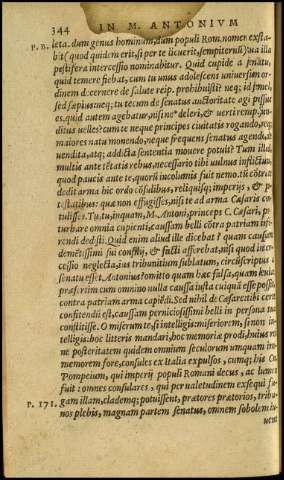 344 IN M. ANTONIVM
P. II. leta. dum genus hominum, dum populi Rom. nomen exsta-
bit (quod quidem erit, si per te licuerit, sempiternum) tua illa
pestifera intercessio nominabitur. Quid cupide a senatu,
quid temere fiebat, cum tu unus adolescens universum or-
dinem decernere de salute reip. prohibuisti? neq; id semel,
sed saepius: neq; tu tecum de senatus auctoritate agi passus
es. quid autem agebatur, nisi ne deleri, & verti remp. funditus
velles? cum te neque principes civitatis rogando, neq;
maiores natu monendo, neque frequens senatus agendo, de
vendita, atq; addicta sententia movere potuit? Tum illud,
multis ante tentatis rebus, necessario tibi vulnus inflictum,
quod paucis ante te, quorum incolumis fuit nemo. tum contra te
dedit arma hic ordo consulibus, reliquisq; imperiis, & po-
testatibus: quae non effugisses, nisi te ad arma Caesaris con-
tulisses. Tu, tu, inquam, M. Antoni, princeps C. Caesari, per-
turbare omnia cupienti, caussam belli contra patriam infe-
rendi dedisti. Quid enim aliud ille dicebat? quam caussam
dementissimi sui consilij, & facti afferebat, nisi quod inter-
cessio neglecta, ius tribunitium sublatum, circumscriptus a
senatu esset Antonius? omitto quam haec falsa, quam levia:
praesertim cum omnino nulla caussa iusta cuiquam esse possit
contra patriam arma capiendi. Sed nihil de Caesare: tibi certe
confitendum est, caussam perniciosissimi belli in persona tua
constitisse. O miserum te, si intelligis: miseriorem, si non in-
telligis: hoc litteris mandari, hoc memoriae prodi, huius rei
ne posteritatem quidem omnium seculorum umquam im-
memorem fore, consules ex Italia expulsos, cumq; his Cn.
Pompeium, qui imperij populi Romani decus, ac lumen
fuit: omnes consulares, qui per valetudinem exsequi fu-
P. 171. gam illam, clademq; potuissent, praetores praetorios, tribu-
nos plebis, magnam partem senatus, omnem sobolem iu-
vent